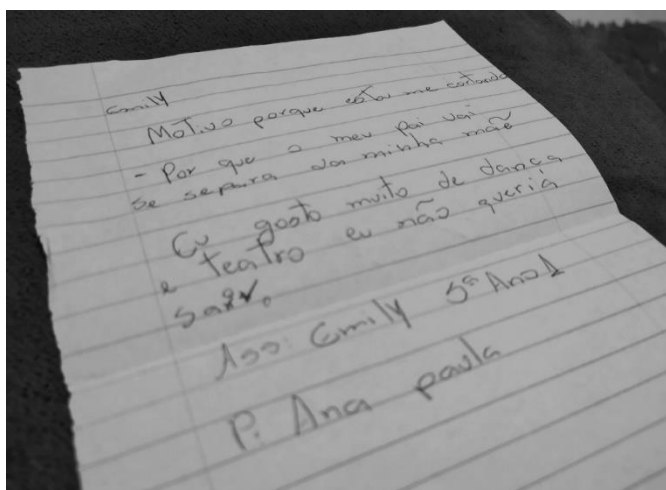 Emily
Motivo porque estou me cortando
- Por que o meu pai vai
se separa da minha mãe
Eu gosto muito de dança
e teatro eu não queria
sair.
Ass: Emily 5º Ano 1
P. Ana paula